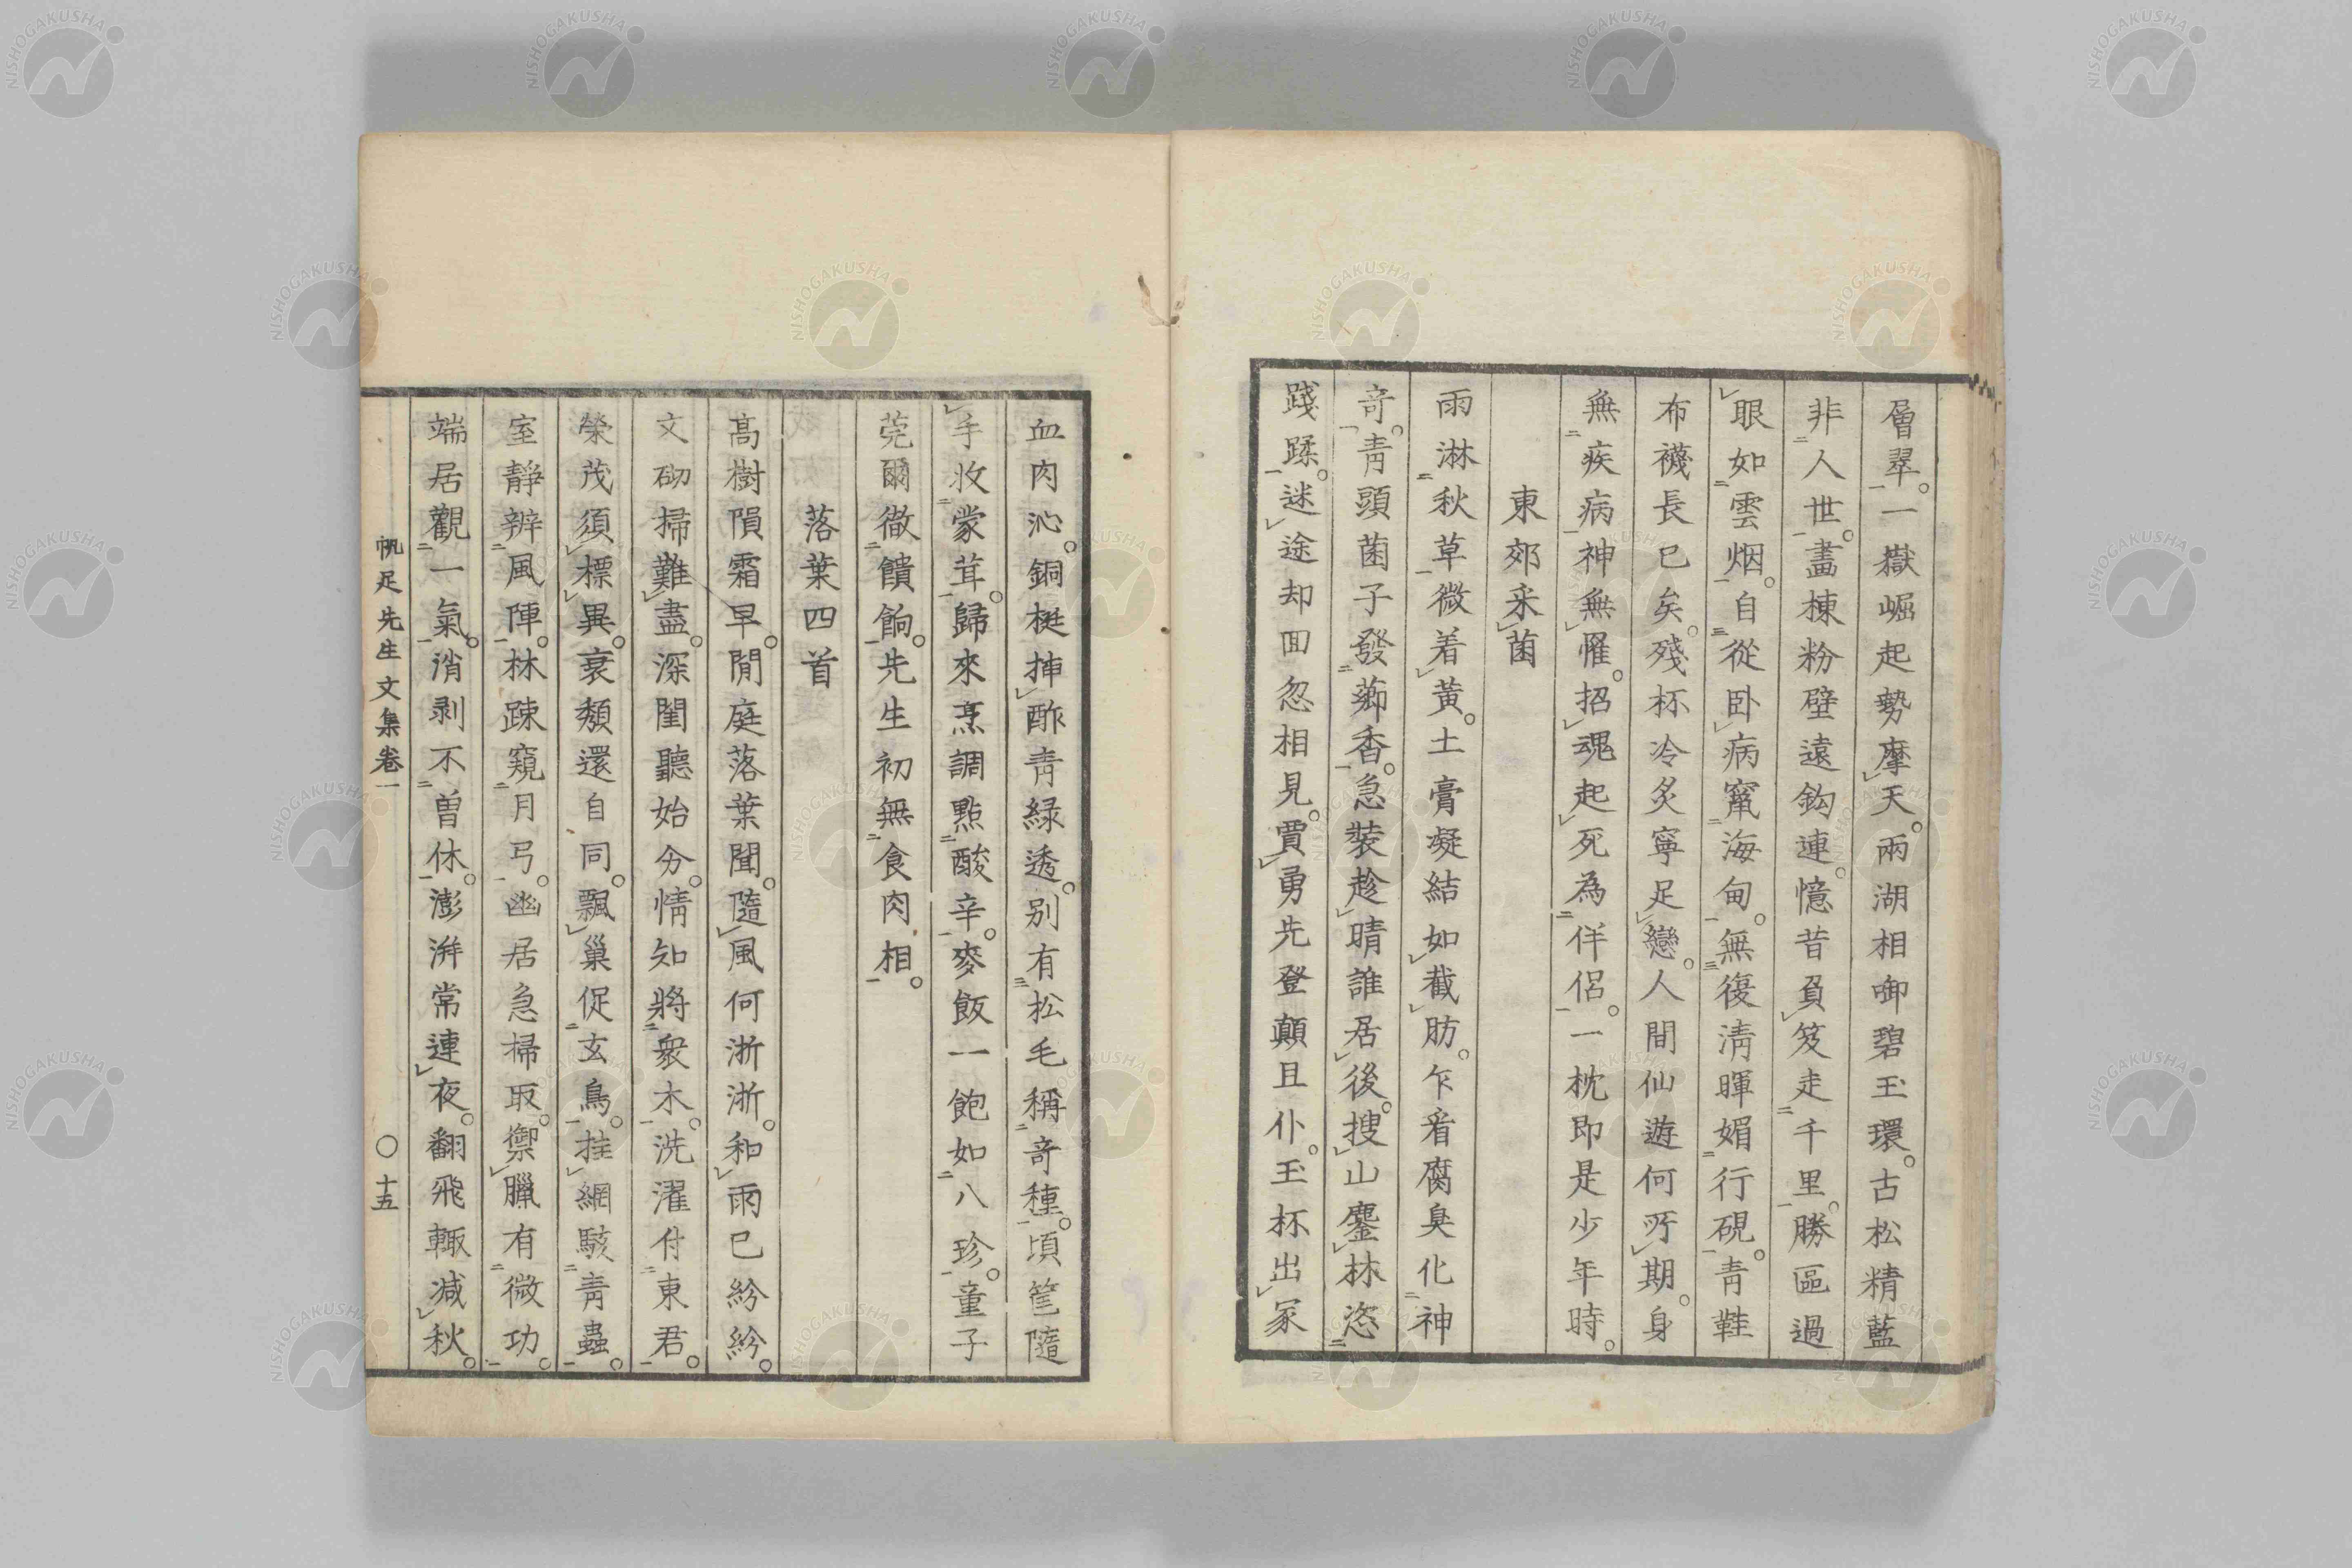 層翠。一嶽崛起勢摩天。兩湖相啣碧玉環。古松精藍
非人世。畵棟粉壁遠鈎連。憶昔負笈走千里。勝區過
眼如雲烟。自從臥病竄海甸。無復淸暉媚行硯。靑鞋
布襪長已矣。殘杯冷炙寧足戀。人間仙遊何所期。身
無疾病神無懼。招魂起死為伴侶。一枕即是少年時。
東郊采菌
雨淋秋草微着黃。土膏凝結如截肪。乍看腐臭化神
奇。靑頭菌子發薌香。急裝趁晴誰居後。搜山鏖林恣
踐蹂。迷途却回忽相見。賈勇先登顚且仆。玉杯出冢
血肉沁。銅梃挿酢靑緑透。別有松毛稱奇種。頃筐隨
手收蒙茸。歸來烹調點酸辛。麥飯一飽如八珍。童子
莞爾徹饋餉。先生初無食肉相。
落葉四首
高樹隕霜早。閒庭落葉聞。隨風何淅淅。和雨已紛紛。
文砌掃難盡。深閨聽始分。情知將衆木。洗濯付東君。
榮茂須標異。衰頽還自同。飄巢促玄鳥。挂網駭靑蟲。
室靜辨風陣。林疎窺月弓。幽居急掃取。禦臘有微功。
端居觀一氣。消剥不曽休。澎湃常連夜。翻飛輙減秋。
帆足先生文集卷一
〇十五
NISHOGAKUSHA